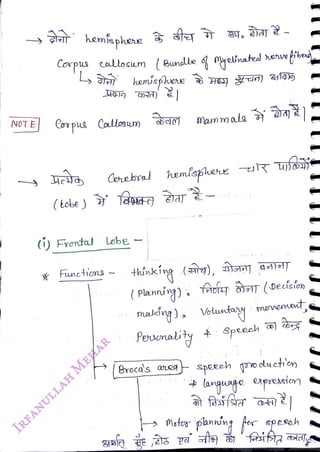 → दोनों hemisphere के बीच में sp. होता है -
Corpus callosum (Bundle of Myelinated nerve fibers)
↳ दोनों hemisphere के मध्य सूचना
प्रदान करता है |
NOTE Corpus Callosum केवल mammals में होता है |
→ प्रत्येक Cerebral hemisphere चार पालियों
(lobe) में विभक्त होता है -
(i) Frontal Lobe -
* Functions - thinking (सोच), योजना बनाना
(Planning), निर्णय लेना (Decision
making), Voluntary movement,
Personality & Speech का केन्द्र
→ Broca's area - speech production
& language expression
को नियंत्रित करता है |
→ Motor planning for speech
अर्थात मुँह, होठ एवं जीभ को नियंत्रित करना,
IRFANULLAH MEHAR